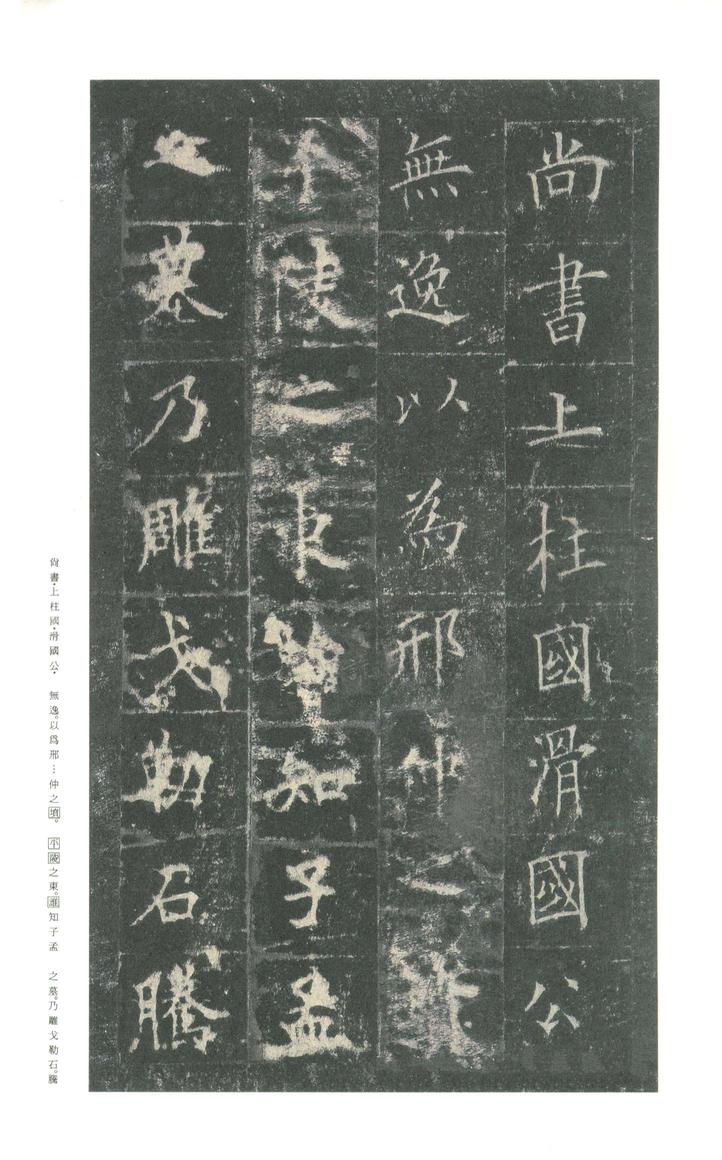 尚書上柱國滑國公
無逸以為邢仲之
陵之東知子孟
之墓乃雕戈勒石騰
尙書·上柱國·滑國公· 無逸。以爲邢…仲之墳。 平陵之東。誰知子孟 之墓。乃雕戈勒石。騰